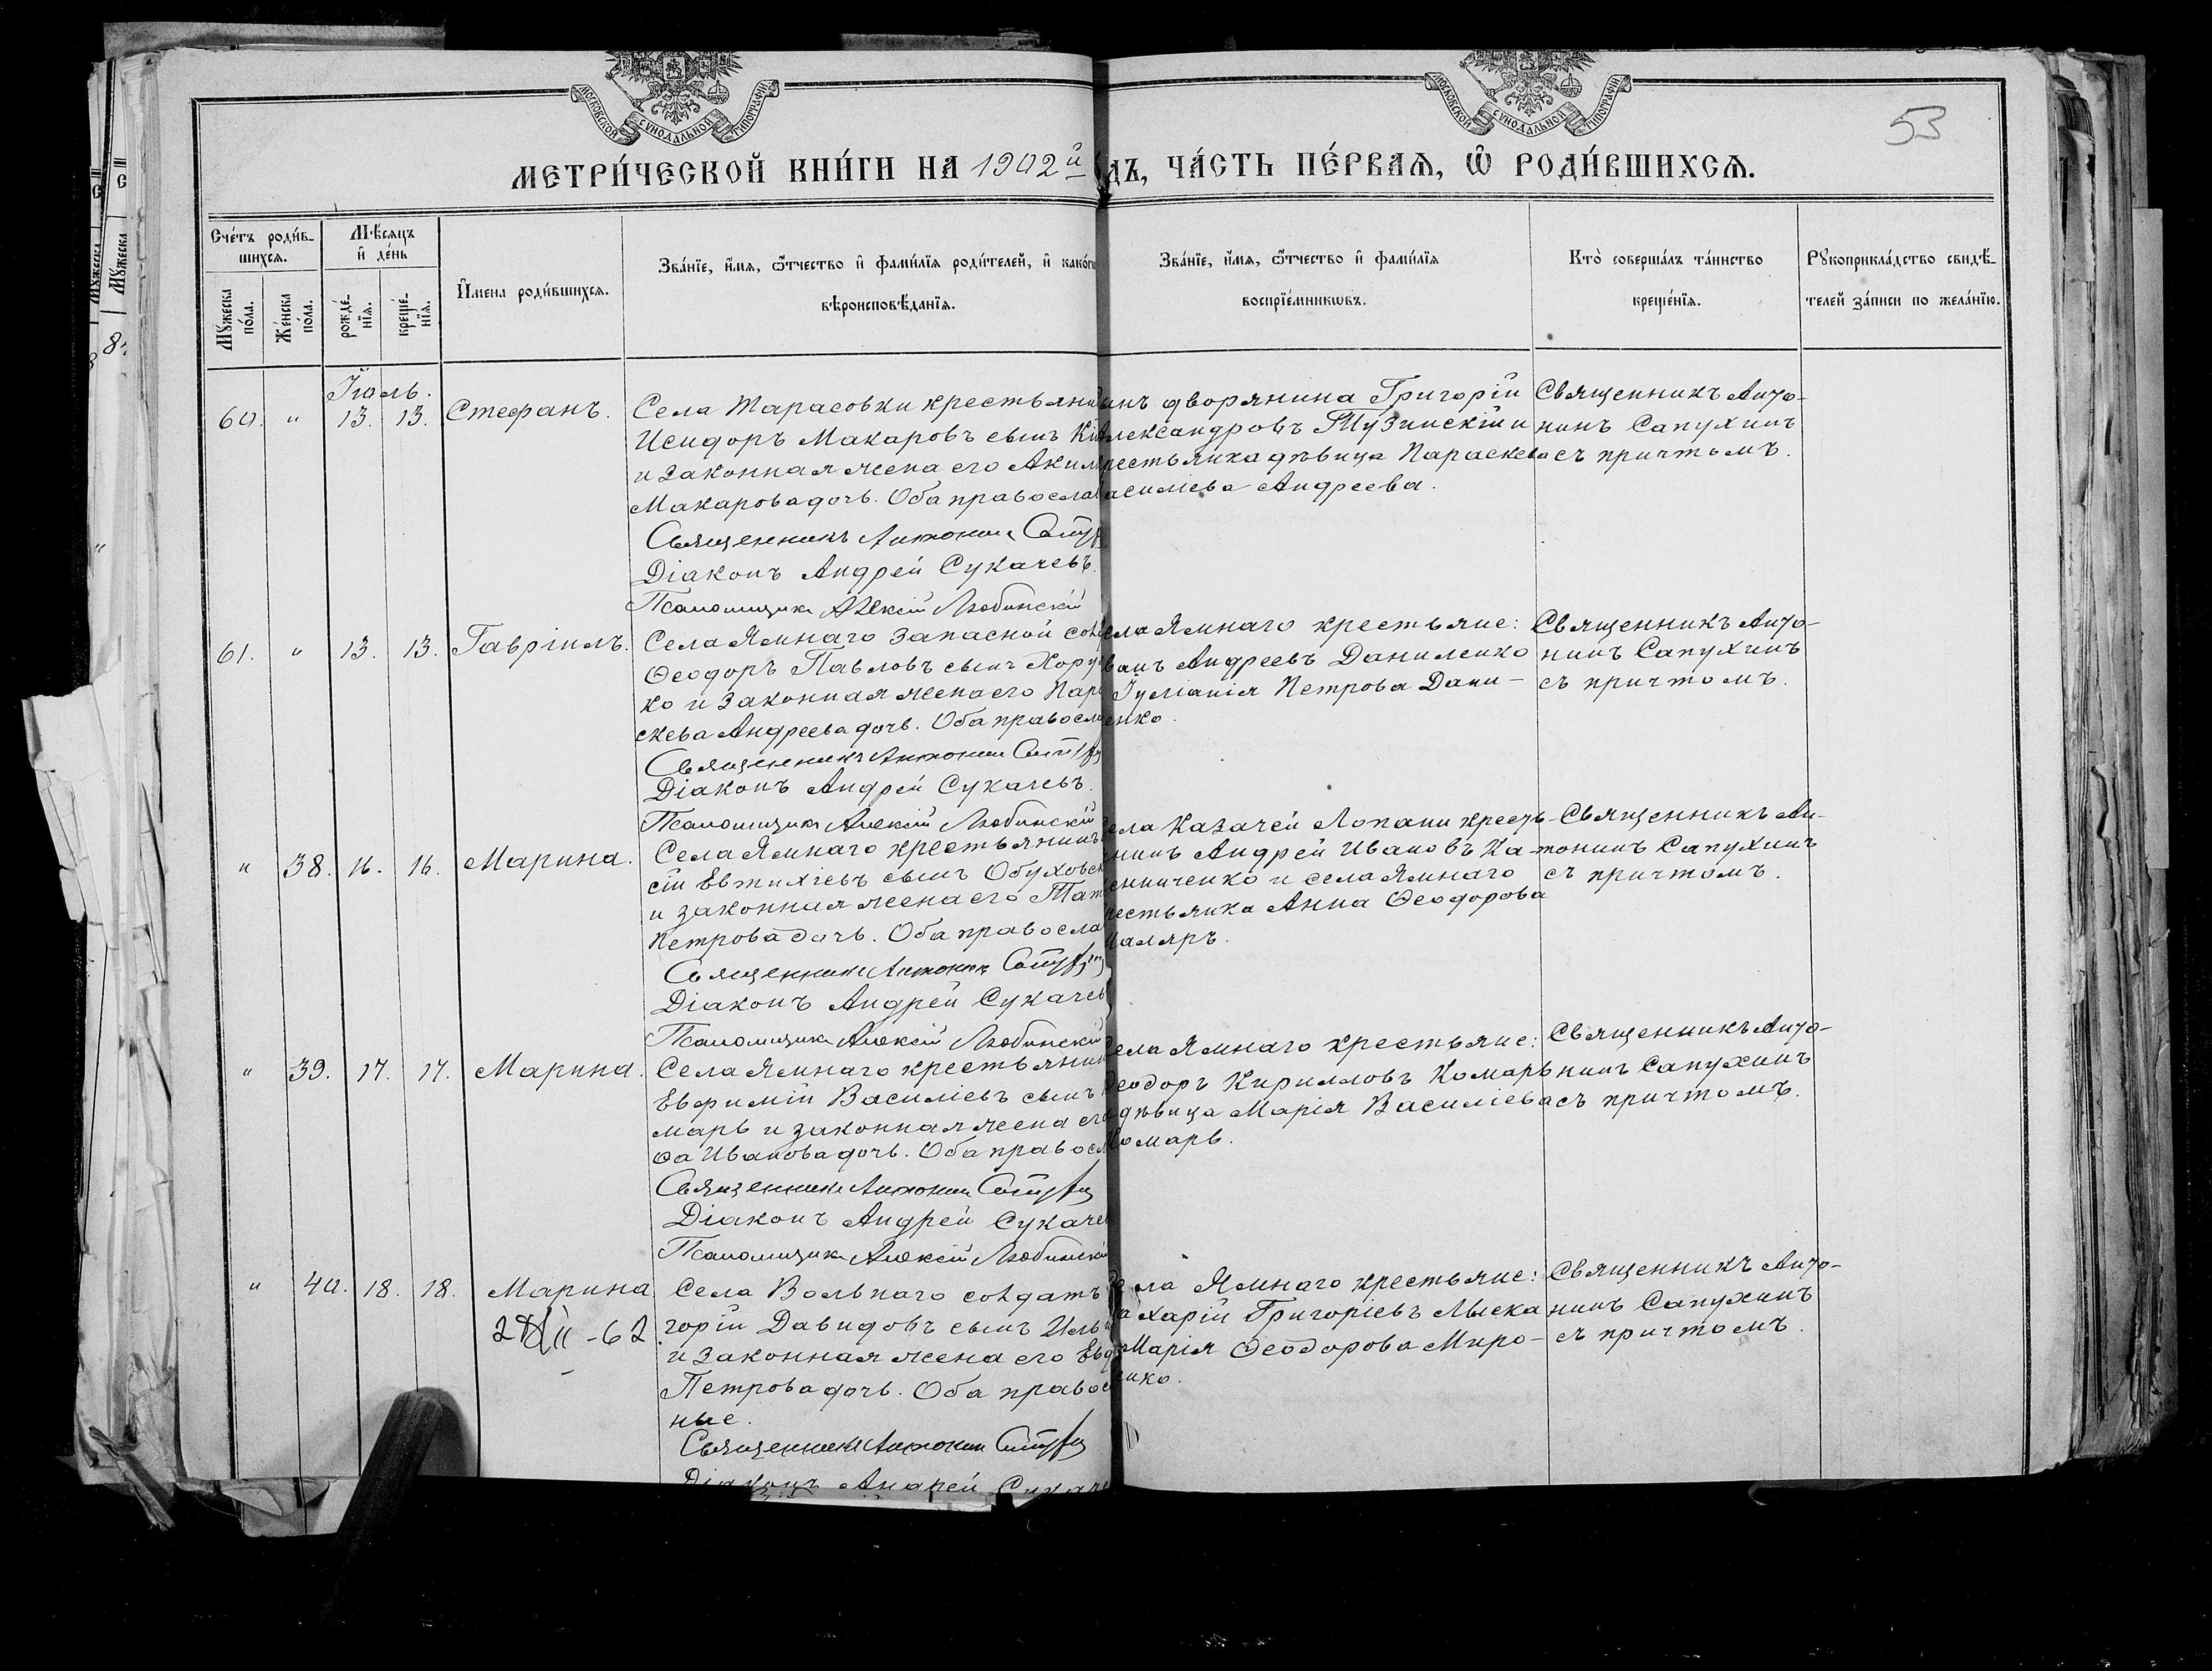 МОСКОВСКОЙ СѴНОДАЛЬНОЙ ТИПОГРАФІИ
МОСКОВСКОЙ СѴНОДАЛЬНОЙ ТИПОГРАФІИ
53
МЕТРИ́ЧЕСКОЙ КНИ́ГИ НА 1902й дъ, ЧА́СТЬ ПЕ́РВАѦ, Ѡ РОДИ́ВШИХСѦ.
Счéтъ роди́в-
шихся.
Мѣсяцъ
и дéнь
Мꙋжеска
пóла.
Жéнска
пóла.
рождé-
нїя.
крещé-
нїя.
Имена роди́вшихся.
Звáнїе, и́мя, ѻтчество и фами́лїя роди́телей, и какóг
вѣроисповѣ́данїя.
Звáнїе, и́мя, ѻтчество и фами́лїя
воспрїéмникѡвъ.
Кто̀ совершáлъ тáинство
крещéнїя.
Рꙋкоприклáдство свидѣ́-
телей зáписи по желáнїю.
Іюль.
60. " 13. 13. Стефанъ.
Села Тарасовки крестьяни
Исидоръ Макаровъ сынъ
и законная жена его Акил
Макарова дочь. Оба правосла
Священникъ Антонин
Діаконъ Андрей Сукачевъ.
Псаломщикъ Алексій Любинскій
инъ дворянина Григорій
лександровъ Тузинскій и
рестьянка дѣвица Параскева
асилиева Андреева.
Священникъ Анто-
нинъ Сапухинъ
съ причтомъ.
61. " 13. 13. Гавріилъ.
Села Ямнаго запасной сол
Ѳеодоръ Павловъ сынъ Хору
ко и законная жена его Пар
скева Андреева дочь. Оба правосла
Священникъ Антонин
Діаконъ Андрей Сукачевъ.
Псаломщикъ Алексій Любинскій
ела Ямнаго крестьяне:
ванъ Андреевъ Даниленко
Іуліанія Петрова Дани-
енко.
Священникъ Анто-
нинъ Сапухинъ
съ причтомъ.
" 38. 16. 16. Марина.
Села Ямнаго крестьянинъ
сій Евтихіевъ сынъ Обуховск
и законная жена его Тат
Петрова дочь. Оба правосла
Священникъ Антонин
Діаконъ Андрей Сукачев
Псаломщикъ Алексій Любинскій
ела Казачей Лопани кресть-
нинъ Андрей Ивановъ Ка-
енниченко и села Ямнаго
рестьянка Анна Ѳеодорова
Маляръ.
Священникъ Ан-
тонинъ Сапухинъ
съ причтомъ.
" 39. 17. 17. Марина.
Села Ямнаго крестьянин
Евфимій Василіевъ сынъ
маръ и законная жена его
ѳа Иванова дочь. Оба правосл
Священникъ Антонин
Діаконъ Андрей Сукачев
Псаломщикъ Алексій Любинскій
ела Ямнаго крестьяне:
еодоръ Кирилловъ Комарь
дѣвица Марія Василіева
Комарь.
Священникъ Анто-
нинъ Сапухинъ
съ причтомъ.
" 40. 18. 18. Марина
-62
Села Вольнаго солдатъ
горій Давидовъ сынъ Иль
и законная жена его Евд
Петрова дочь. Оба правос
ные.
Священникъ Антонин
Діаконъ Андрей Сукаче
ела Ямнаго крестьяне:
ахарій Григоріевъ Лыска
Марія Ѳеодорова Миро-
енко.
Священникъ Анто-
нинъ Сапухинъ
съ причтомъ.